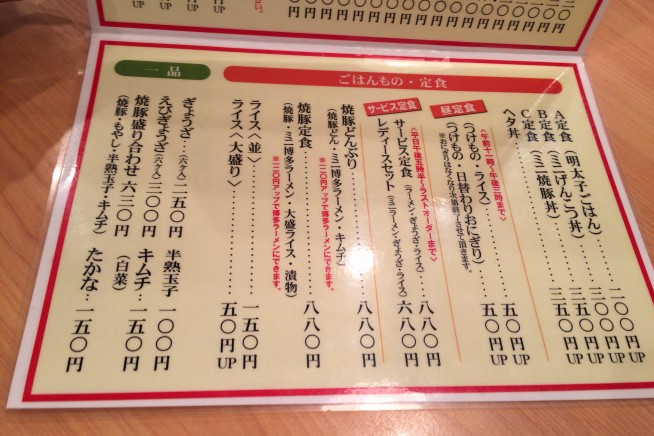 ごはんもの・定食
A定食(明太子ごはん)……二〇〇円UP
B定食(ミニげんこつ丼)……三〇〇円UP
C定食(ミニ焼豚丼)……三五〇円UP
ヘタ丼……三五〇円
昼定食
<午前十一時~午後三時まで>
(つけもの・ライス)……五〇円UP
(つけもの・日替わりおにぎり)……五〇円UP
※おにぎりはなくなり次第終了させて頂きます。
サービス定食
<平日午後五時半~ラストオーダーまで>
サービス定食(ラーメン・ぎょうざ・ライス)……八八〇円
レディースセット(ミニラーメン・ぎょうざ・ライス)六八〇円
焼豚どんぶり……八八〇円
(焼豚どん・ミニ博多ラーメン・キムチ)
※二〇円アップで博多ラーメンにできます。
焼豚定食……八八〇円
(焼豚・ミニ博多ラーメン・大盛ライス・漬物)
※二〇円アップで博多ラーメンにできます。
ライス<並>……一五〇円
ライス<大盛り>……五〇円UP
一品
ぎょうざ…(六ヶ入)二五〇円
えびぎょうざ(六ヶ入)三〇〇円
焼豚盛り合わせ 六三〇円
(焼豚・もやし・半熟玉子・キムチ)
半熟玉子 一〇〇円
キムチ…一五〇円
(白菜)
たかな…一五〇円